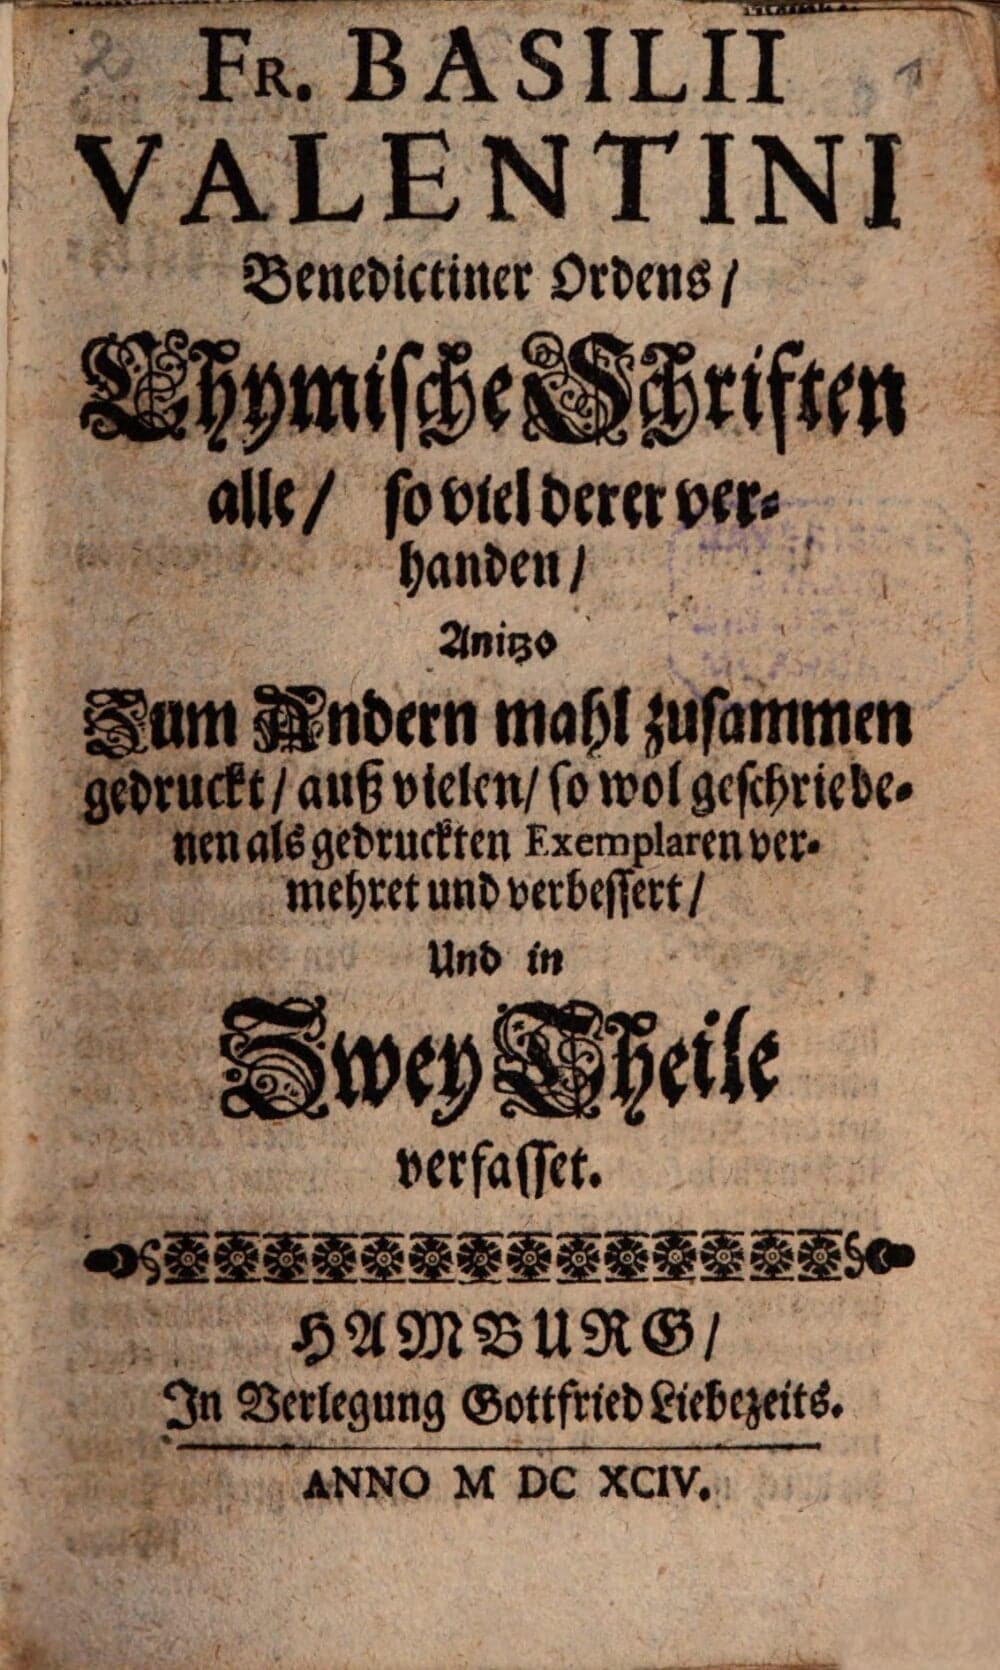 FR. BASILII
VALENTINI
Benedictiner Ordens/
Chymische Schriften
alle/ so viel derer ver⸗
handen/
Anitzo
Zum Andern mahl zusammen
gedruckt/ auß vielen/ so wol geschriebe⸗
nen als gedruckten Exemplaren ver⸗
mehret und verbessert/
Und in
Zwey Theile
verfasset.
HAMBURG/
In Verlegung Gottfried Liebezeits.
ANNO M DC XCIV.